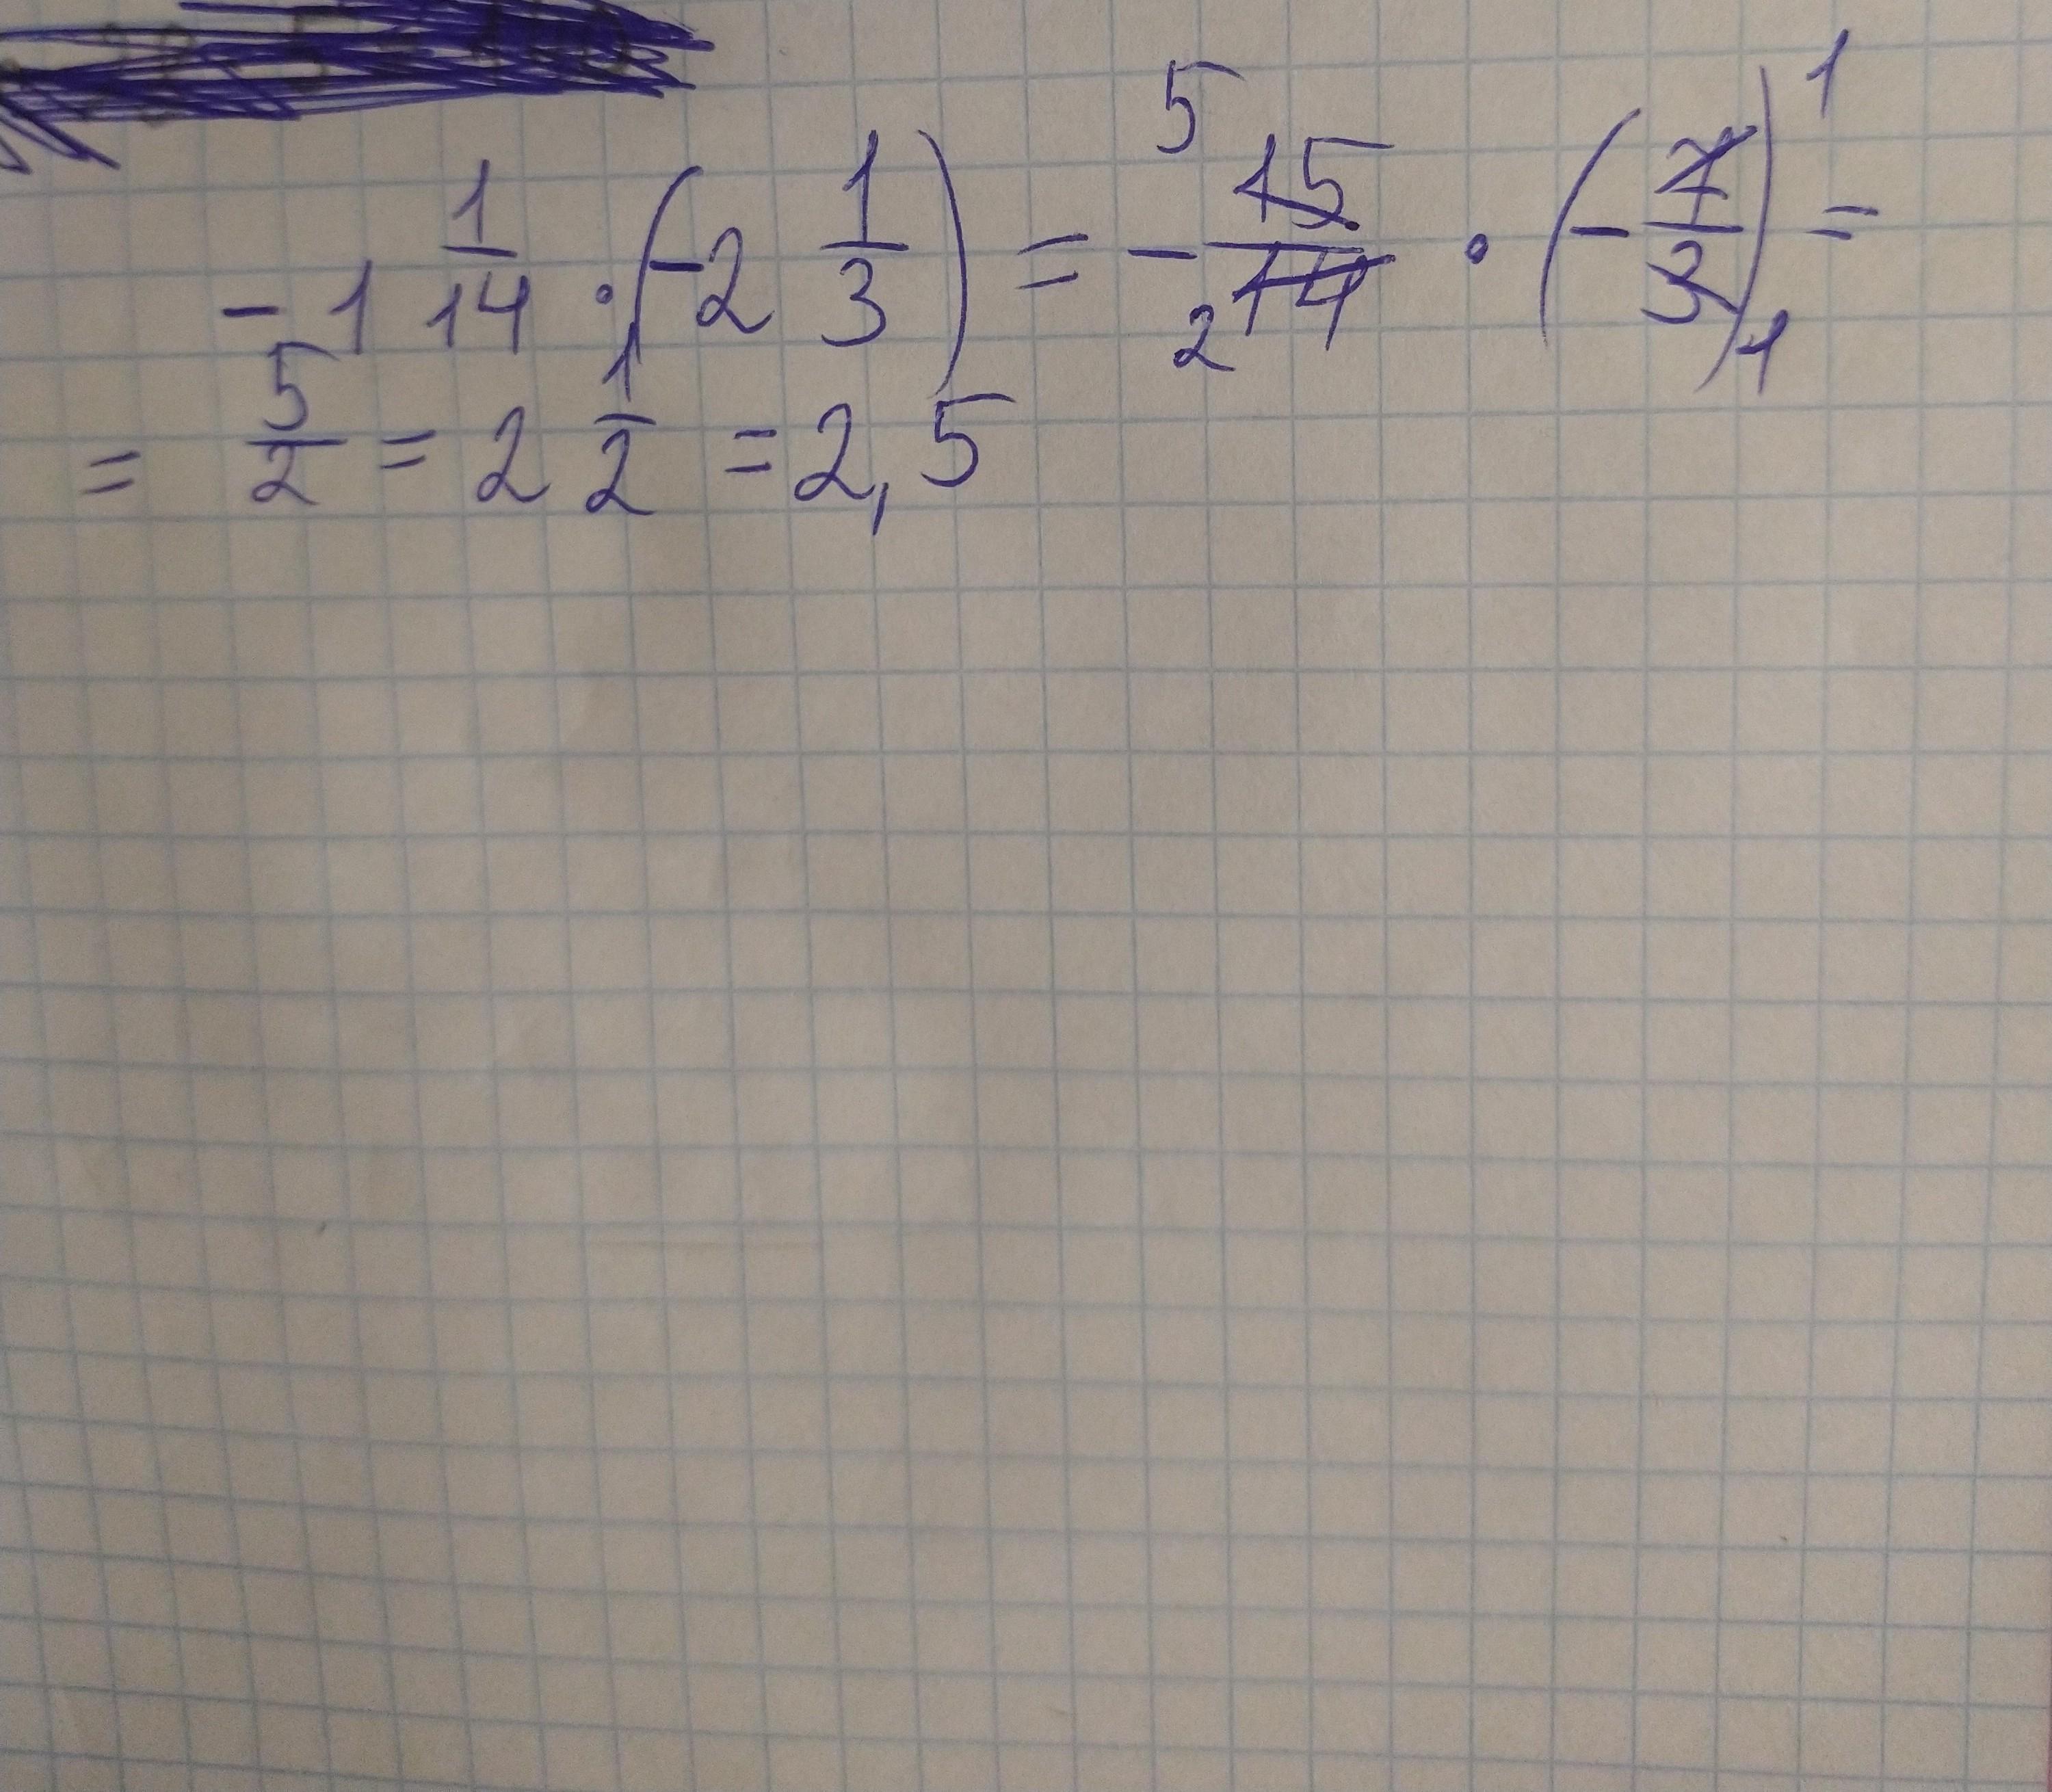 -1 1/14 · (-2 1/3) = - 5 15/14 2 · (- 7/3) 1 1 =
= 5/2 = 2 1/2 = 2,5